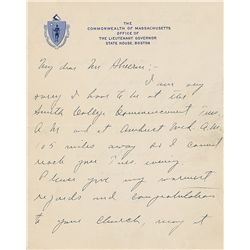 THE
COMMONWEALTH OF MASSACHUSETTS
OFFICE OF
THE LIEUTENANT GOVERNOR
STATE HOUSE, BOSTON
My dear Mr Ahearn:-
I am very
sorry I have to be at the
Smith College Commencement Tues.
A.M. and at Amherst Wed. A.M.
105 miles away so I cannot
reach you Tues. evening.
Please give my warmest
regards and congratulations
to your Church, may it